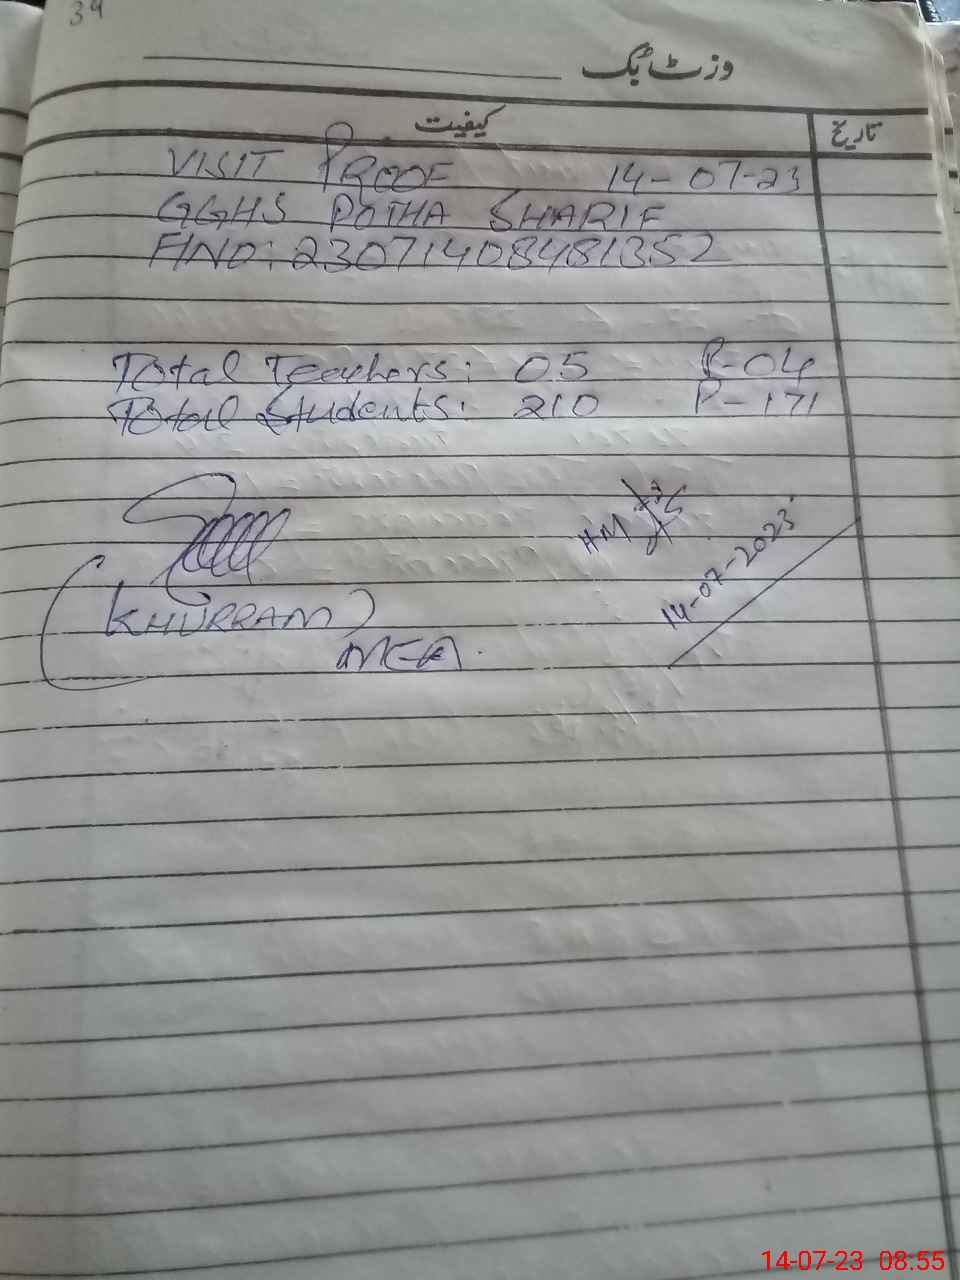 34
وزٹ بک
کیفیت
تاریخ
VISIT PROOF 14-07-23
GGHS POTHA SHARIF
FINO: 23071408481352
Total Teachers: 05 P-04
Total Students: 210 P-171
HM
14-07-2023
(KHURRAM)
MEA.
14-07-23 08.55